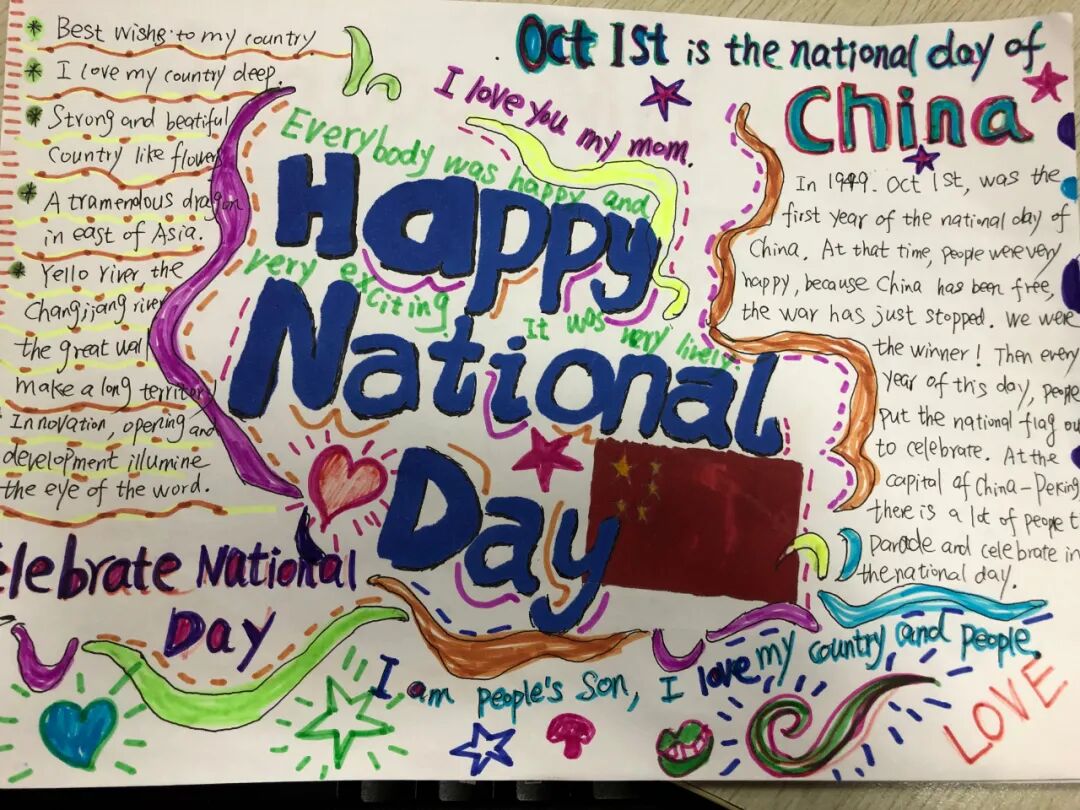 Best wishs to my country.
I love my country deep.
Strong and beatiful
country like flower
A tramendous dragon
in east of Asia.
Yello river, the
Changjijang river
the great wall
make a long territory
Innovation, opening and
development illumine
the eye of the word.
Celebrate National
Day
I love you my mom.
Everybody was happy and
very exciting
It was very lively.
Happy
National
Day
Oct 1st is the national day of
China
In 1949. Oct 1st, was the
first year of the national day of
China. At that time, people were very
happy, because China has been free,
the war has just stopped. We were
the winner! Then every
year of this day, people
put the national flag out
to celebrate. At the
capital of China - Peking
there is a lot of people t
Parade and celebrate in
the national day.
I am people's Son, I love my country and people.
LOVE